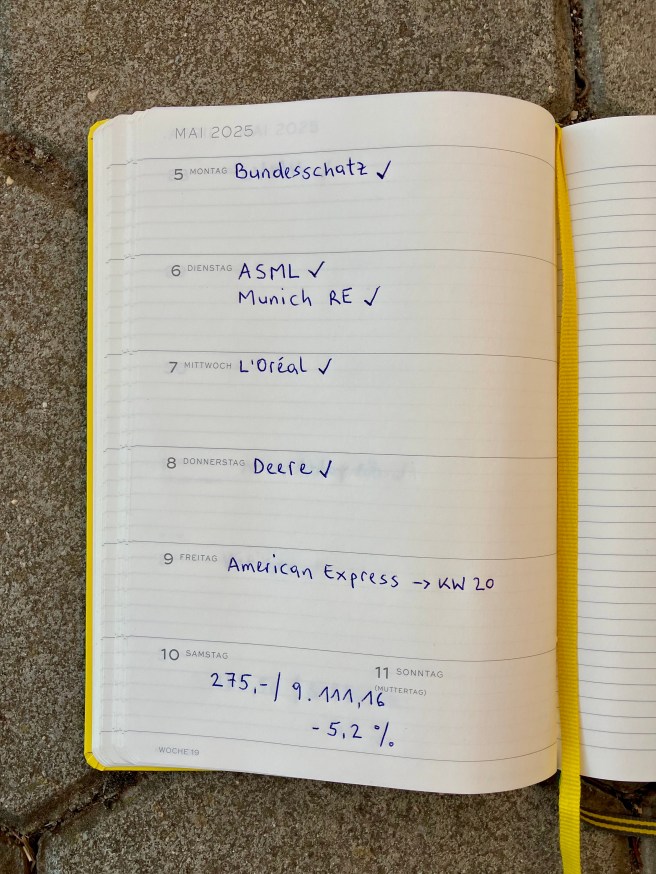 MAI 2025
5 MONTAG Bundesschatz ✓
6 DIENSTAG ASML ✓
Munich RE ✓
7 MITTWOCH L'Oréal ✓
8 DONNERSTAG Deere ✓
9 FREITAG American Express → KW 20
10 SAMSTAG
11 SONNTAG
(MUTTERTAG)
275,-/ 9.111,16
- 5,2 %
WOCHE 19